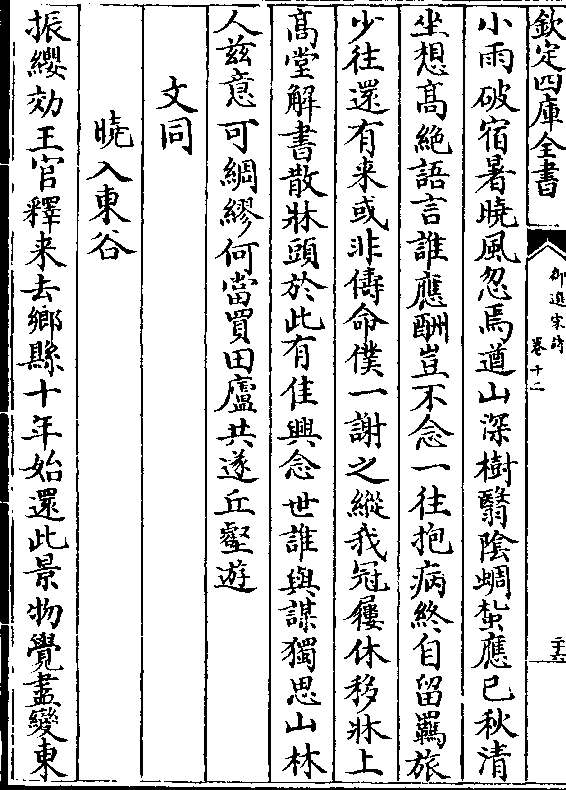 欽定四庫全書
御選宋詩
卷十二
二十六
小雨破宿暑曉風忽焉遒山深樹翳陰蜩蛩應已秋清
坐想髙絶語言誰應酬豈不念一往抱病終自留羈旅
少往還有来或非儔命僕一謝之縱我冠屨休移牀上
髙堂解書散牀頭於此有佳興念世誰與謀獨思山林
人兹意可綢繆何當買田廬共遂丘壑遊
文同
曉入東谷
振纓効王官釋来去鄉縣十年始還此景物覺盡變東